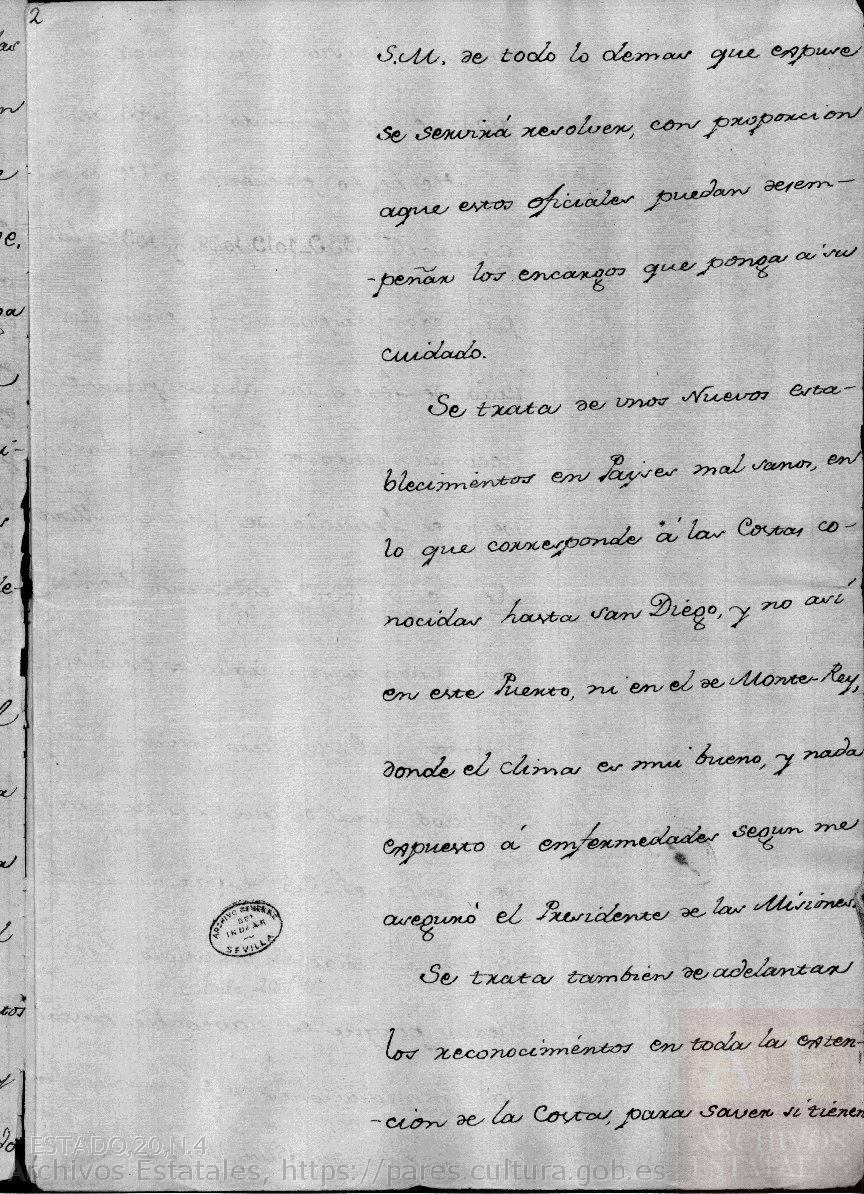 2
S.M. de todo lo demas que expuse
se servirá resolver, con proporcion
aque estos oficiales puedan desem-
-peñar los encargos que ponga a su
cuidado.
Se trata de unos Nuevos esta-
blecimientos en Payses mal sanos, en
lo que corresponde á las Costas co-
nocidas hasta san Diego, y no así
en este Puerto, ni en el de Monte-Rey,
donde el clima es mui bueno, y nada
expuesto á enfermedades segun me
aseguró el Presidente de las Misiones.
Se trata tambien de adelantar
los reconocimientos en toda la exten-
-cion de la Costa, para saver si tienen
ARCHIVO GENERAL
DE
INDIAS
SEVILLA
ESTADO,20,N.4
Archivos Estatales, https://pares.cultura.gob.es
AE
ARCHIVOS
ESTATALES